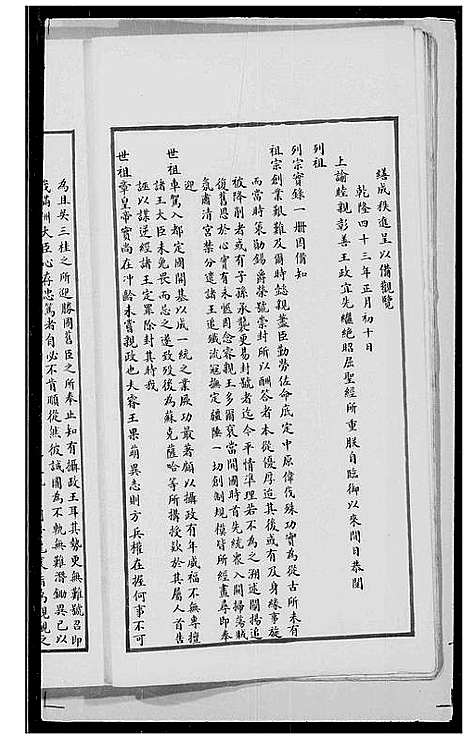 繕成秩進呈以備觀覽
乾隆四十三年正月初十日
上諭睦親彰善王政宜先繼絕昭屈聖經所重朕自臨御以來間日恭閱
列祖
列宗實錄一冊因備知
祖宗創業艱難及爾時懿親藎臣勤勞佐命底定中原偉伐殊功實為從古所未有
而當時策勛錫爵榮號崇封所以酬答者本從優厚追其後或有及身緣事旋
被降削者或有子孫承襲更易封號者迄今平情準理若不為之溯述闡揚追
復舊恩於心實有未愜因念睿親王多爾袞當開國時首先統衆入關掃蕩賊
氛肅清宮禁分遣諸王追殲流寇撫定疆陲一切創制規模皆所經畫尋即奉
迎
世祖車駕入都定國開基以成一統之業厥功最著顧以攝政有年威福不無專擅
諸王大臣未免畏而忌之遂致歿後為蘇克薩哈等所搆授款於其屬人首告
誣以謀逆經諸王定罪除封其時我
世祖章皇帝實尚在沖齡未嘗親政也夫睿王果萌異志則方兵權在握何事不可
為且吳三桂之所迎勝國舊臣之所奉止知有攝政王耳其勢更無難號召即
我滿洲大臣心存忠篤者自必不肯順從然彼誠圖為不軌無難潛鋤異己以